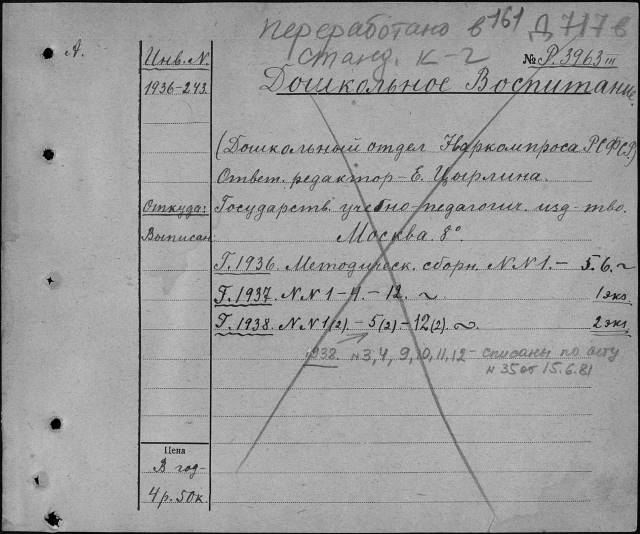 переработано в 161 Д 717в
станд. к-г
А.
Инв. N.
1936-243.
№ Р. 3963 III
Дошкольное Воспитание
(Дошкольный отдел Наркомпроса РСФСР)
Ответ. редактор - Е. Цырлина.
Откуда:
Выписан
Государств. учебно-педагогич. изд-тво.
Москва. 8°.
Г. 1936. Методическ. сборн. N N 1. - 5. 6. ~
Г. 1937. N N 1 - 4. - 12. ~ 1 экз.
Г. 1938. N N 1(2). - 5(2) - 12(2). ~ 2 экз.
1938. N 3, 4, 9, 10, 11, 12 - списаны по акту
N 35 от 15.6.81
Цена
В год -
4 р. 50 к.